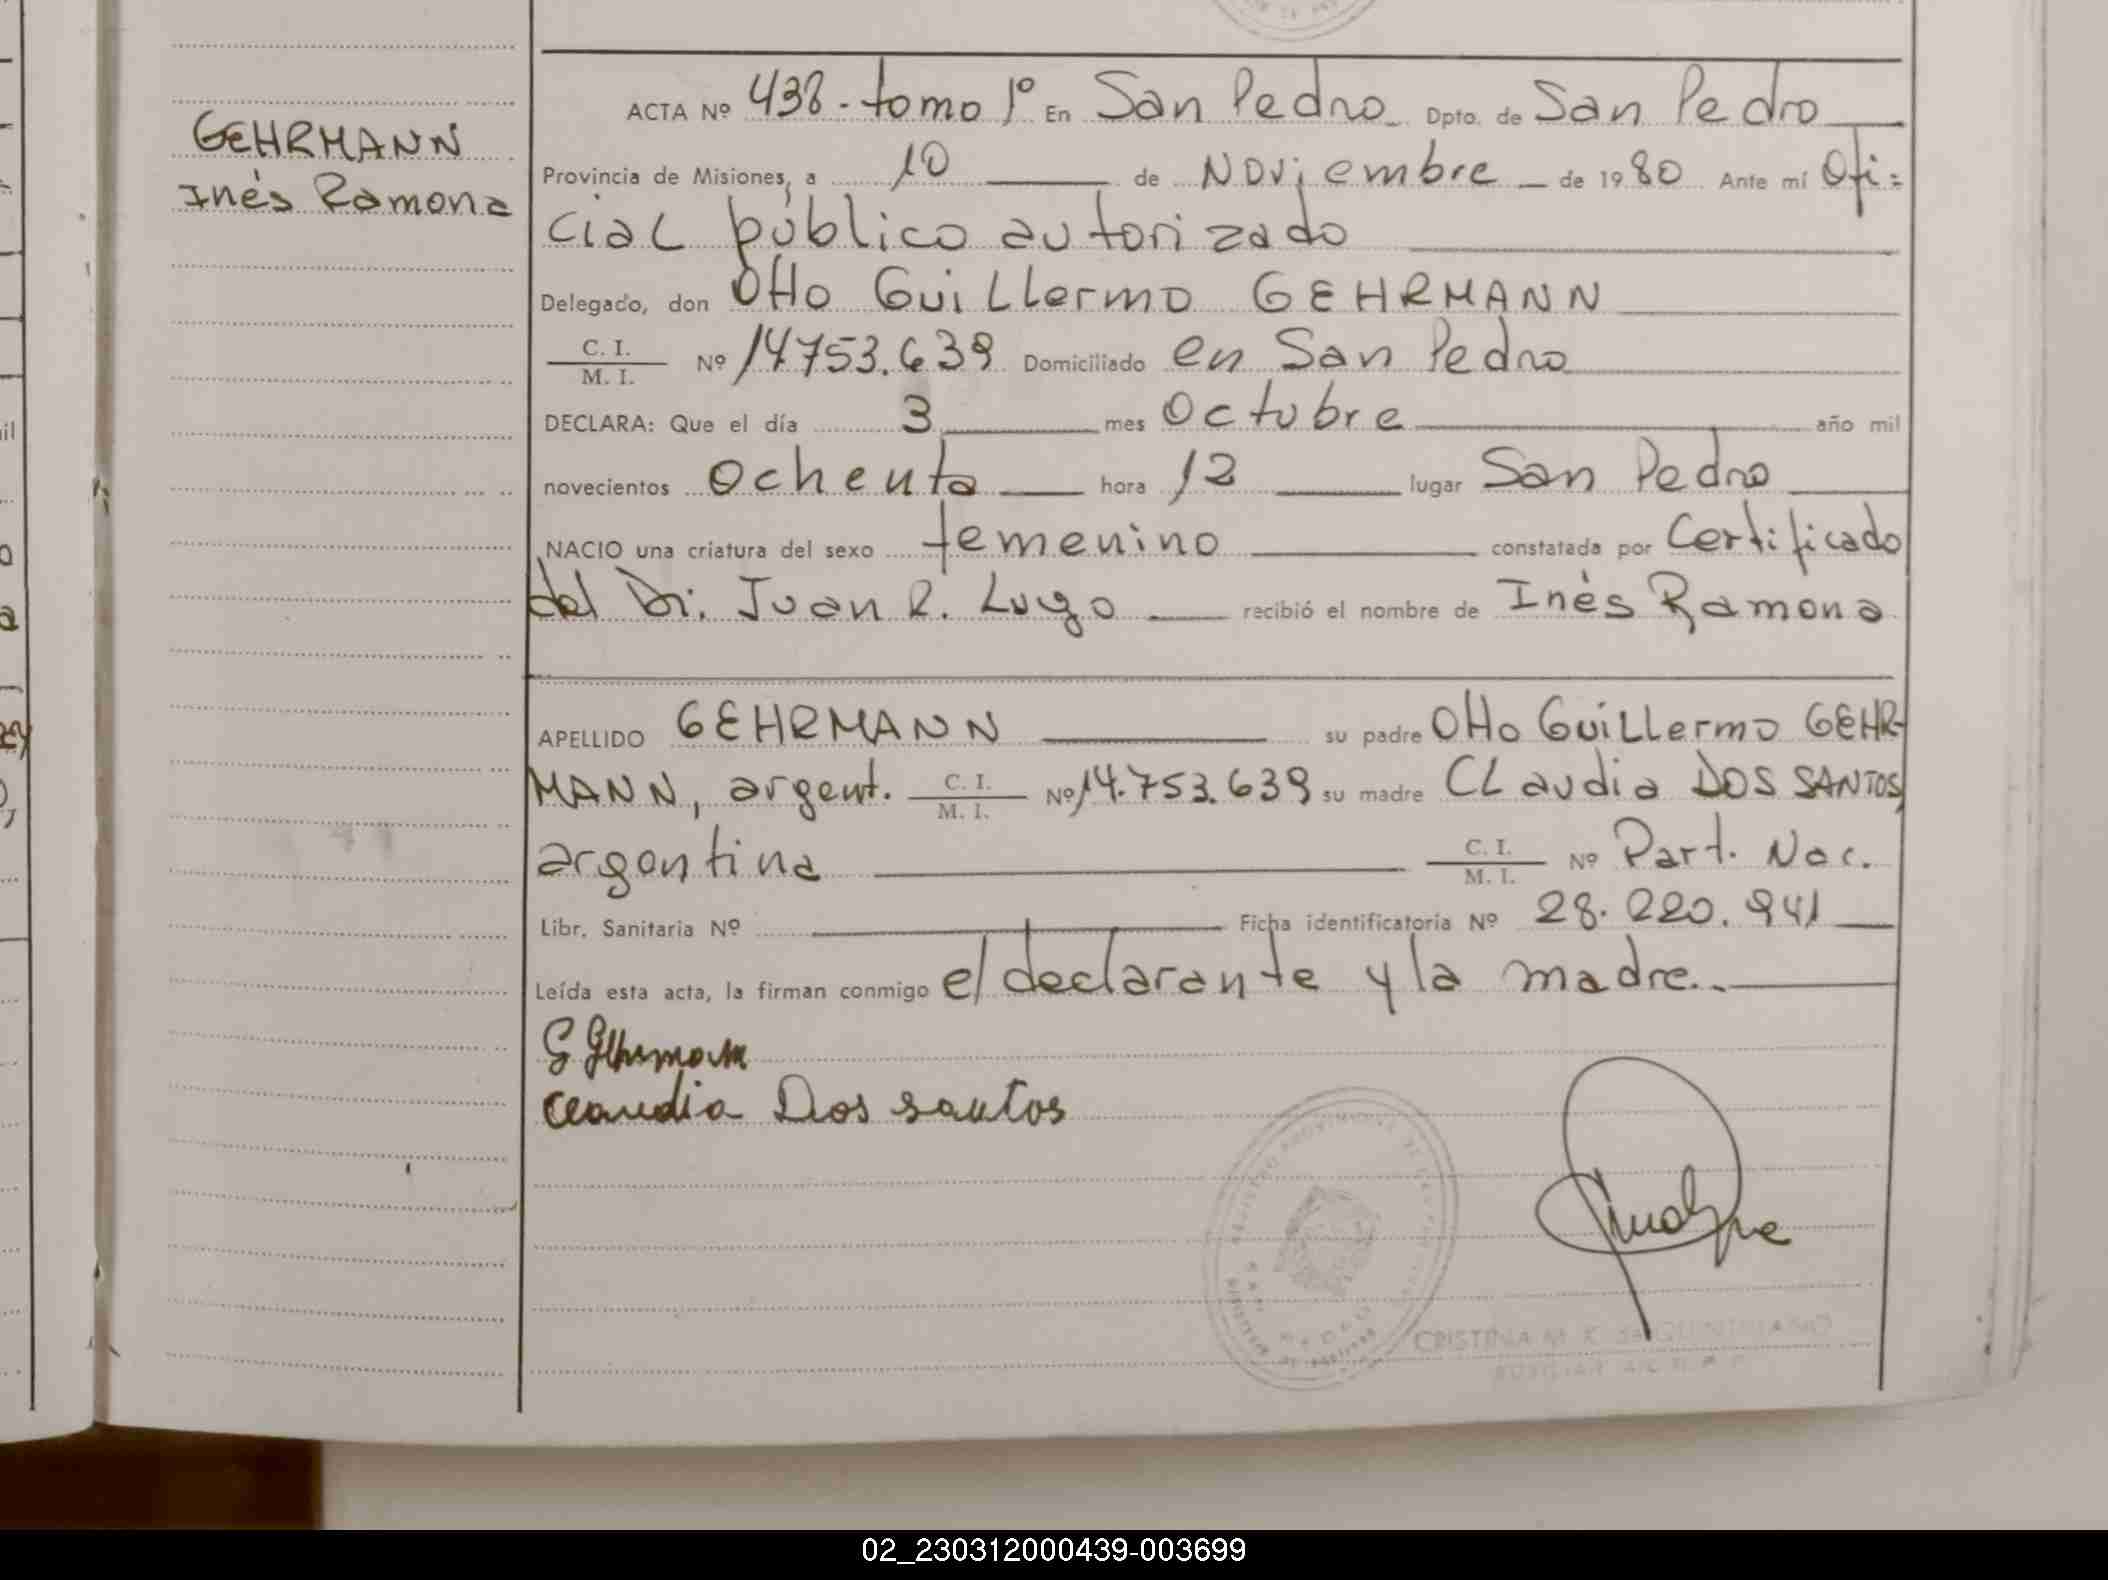 GEHRMANN
Inés Ramona
ACTA Nº 438 - tomo 1º En San Pedro Dpto. de San Pedro
Provincia de Misiones, a 10 de Noviembre de 1980 Ante mí Ofi=
cial público autorizado
Delegado, don Otto Guillermo GEHRMANN
C. I.
M. I. Nº 14753.639 Domiciliado en San Pedro
DECLARA: Que el día 3 mes Octubre año mil
novecientos ochenta hora 12 lugar San Pedro
NACIO una criatura del sexo femenino constatada por Certificado
del Dr. Juan R. Lugo recibió el nombre de Inés Ramona
APELLIDO GEHRMANN su padre Otto Guillermo GEHR-
MANN, argent. C. I. M. I. Nº 14.753.639 su madre Claudia DOS SANTOS,
argentina C. I. M. I. Nº Part. Nac.
Libr. Sanitaria Nº Ficha identificatoria Nº 28.220.941
Leída esta acta, la firman conmigo el declarante y la madre..
G Gehrmann
Claudia Dos santos
CRISTINA M. K. de QUINTANO
AUXILIAR
02_230312000439-003699